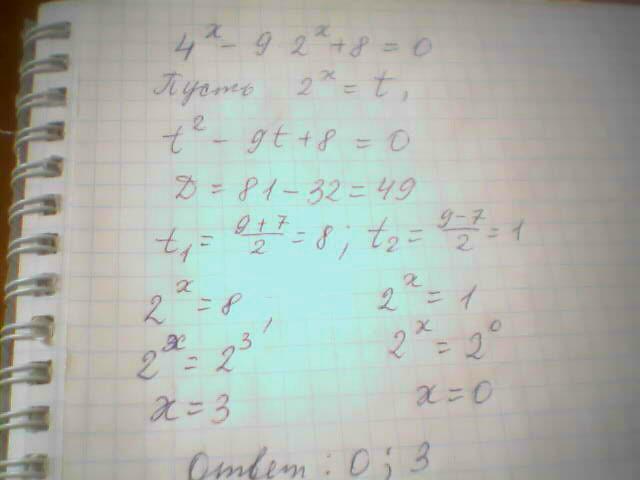 4^x - 9 2^x + 8 = 0
Пусть 2^x = t,
t^2 - 9t + 8 = 0
D = 81 - 32 = 49
t₁ = (9+7)/2 = 8; t₂ = (9-7)/2 = 1
2^x = 8, 2^x = 1
2^x = 2^3 2^x = 2^0
x = 3 x = 0
Ответ: 0; 3